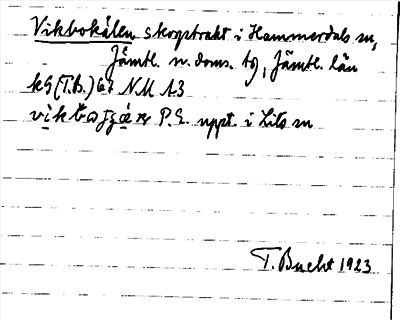 Vikbokälen skogstrakt i Hammerdals sn,
Jämtl. n. doms. tg, Jämtl. län
kG (T.B.) 67 NM A3
P.E. uppt. i Lits sn
T. Bucht 1923